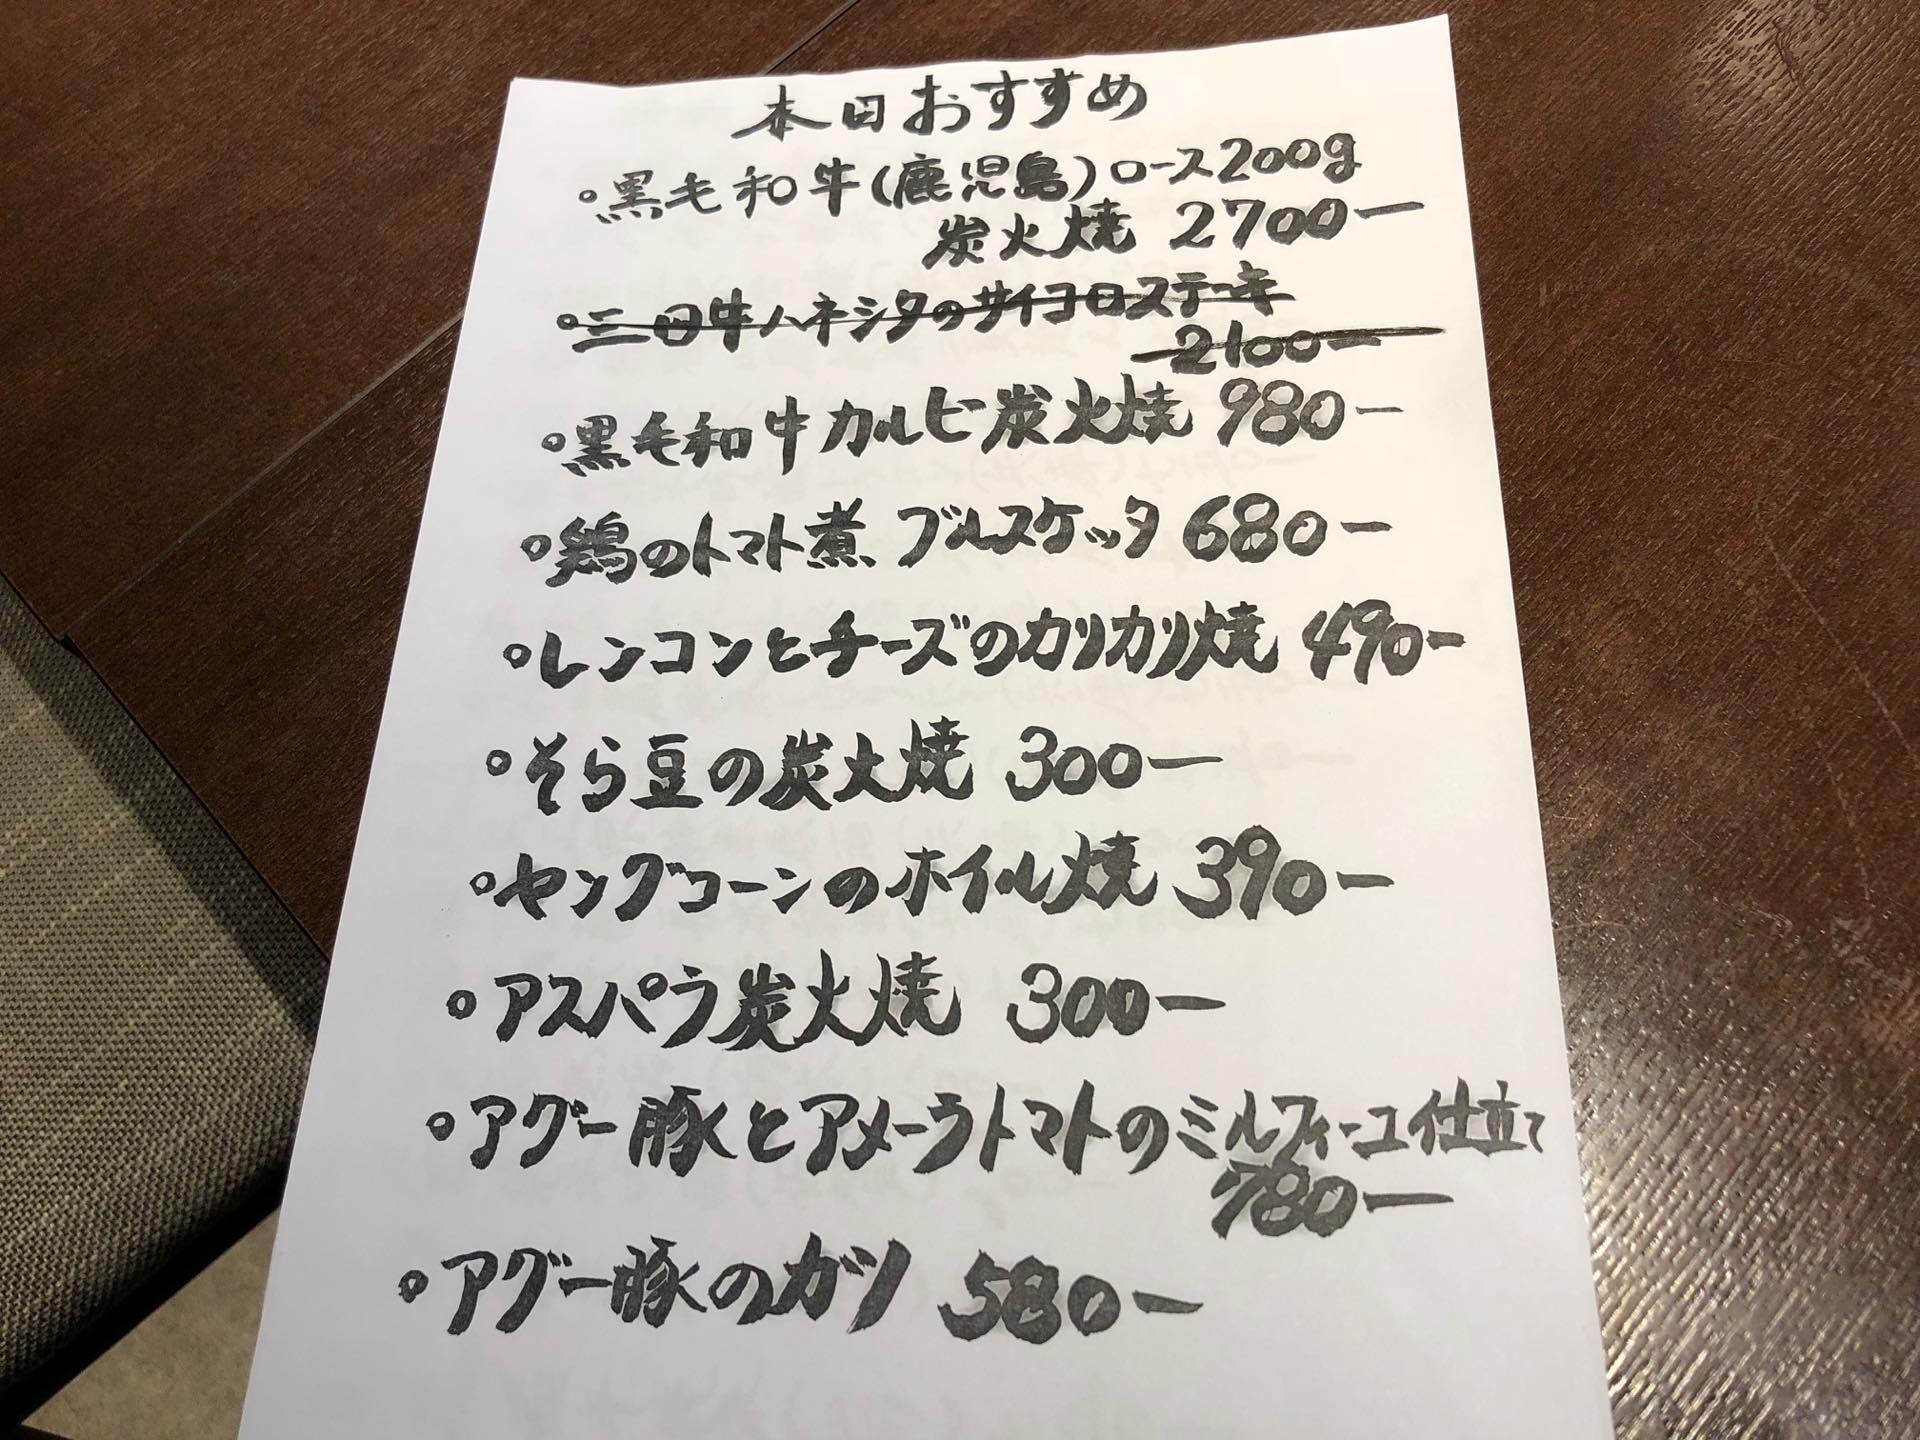 本日おすすめ
○黒毛和牛(鹿児島)ロース200g
炭火焼 2700ー
○三田牛ハネシタのサイコロステーキ
2100ー
○黒毛和牛カルビ炭火焼 980ー
○鶏のトマト煮 ブルスケッタ 680ー
○レンコンとチーズのカリカリ焼 490ー
○そら豆の炭火焼 300ー
○ヤングコーンのホイル焼 390ー
○アスパラ炭火焼 300ー
○アグー豚とアメーラトマトのミルフィーユ仕立て
780ー
○アグー豚のガツ 580ー